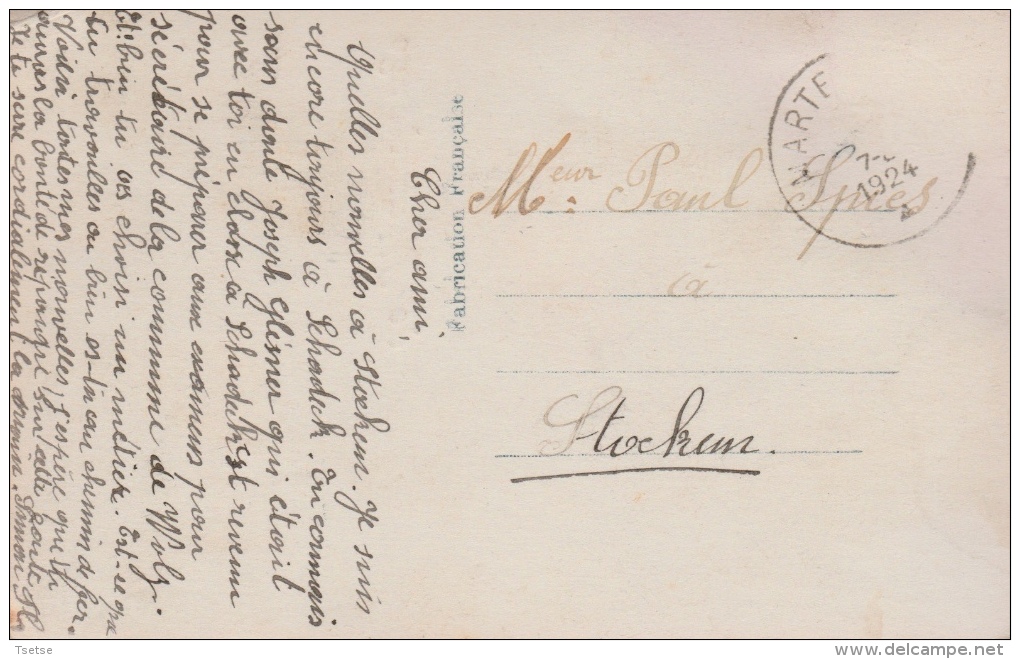 Cher ami,
Quelles nouvelles à Stockem. Je suis
encore toujours à Schadeck. Tu connais
sans doute Joseph Glesner qui était
avec toi en classe à Schadeck est revenu
pour se préparer aux examens pour
sécrétaire de la commune de Wolz.
Et bien tu as choisi un métier. Est-ce que
tu travailles ou bien es-tu au chemin de fer.
Voilà toutes mes nouvelles, j'espère que tu
auras la bonté de répondre sur cette carte
Je te serre cordialement la main.
Fabrication Française
Meur: Paul Spies
à
Stockem.
MARTE
1924
Tsetse
delcampe.net